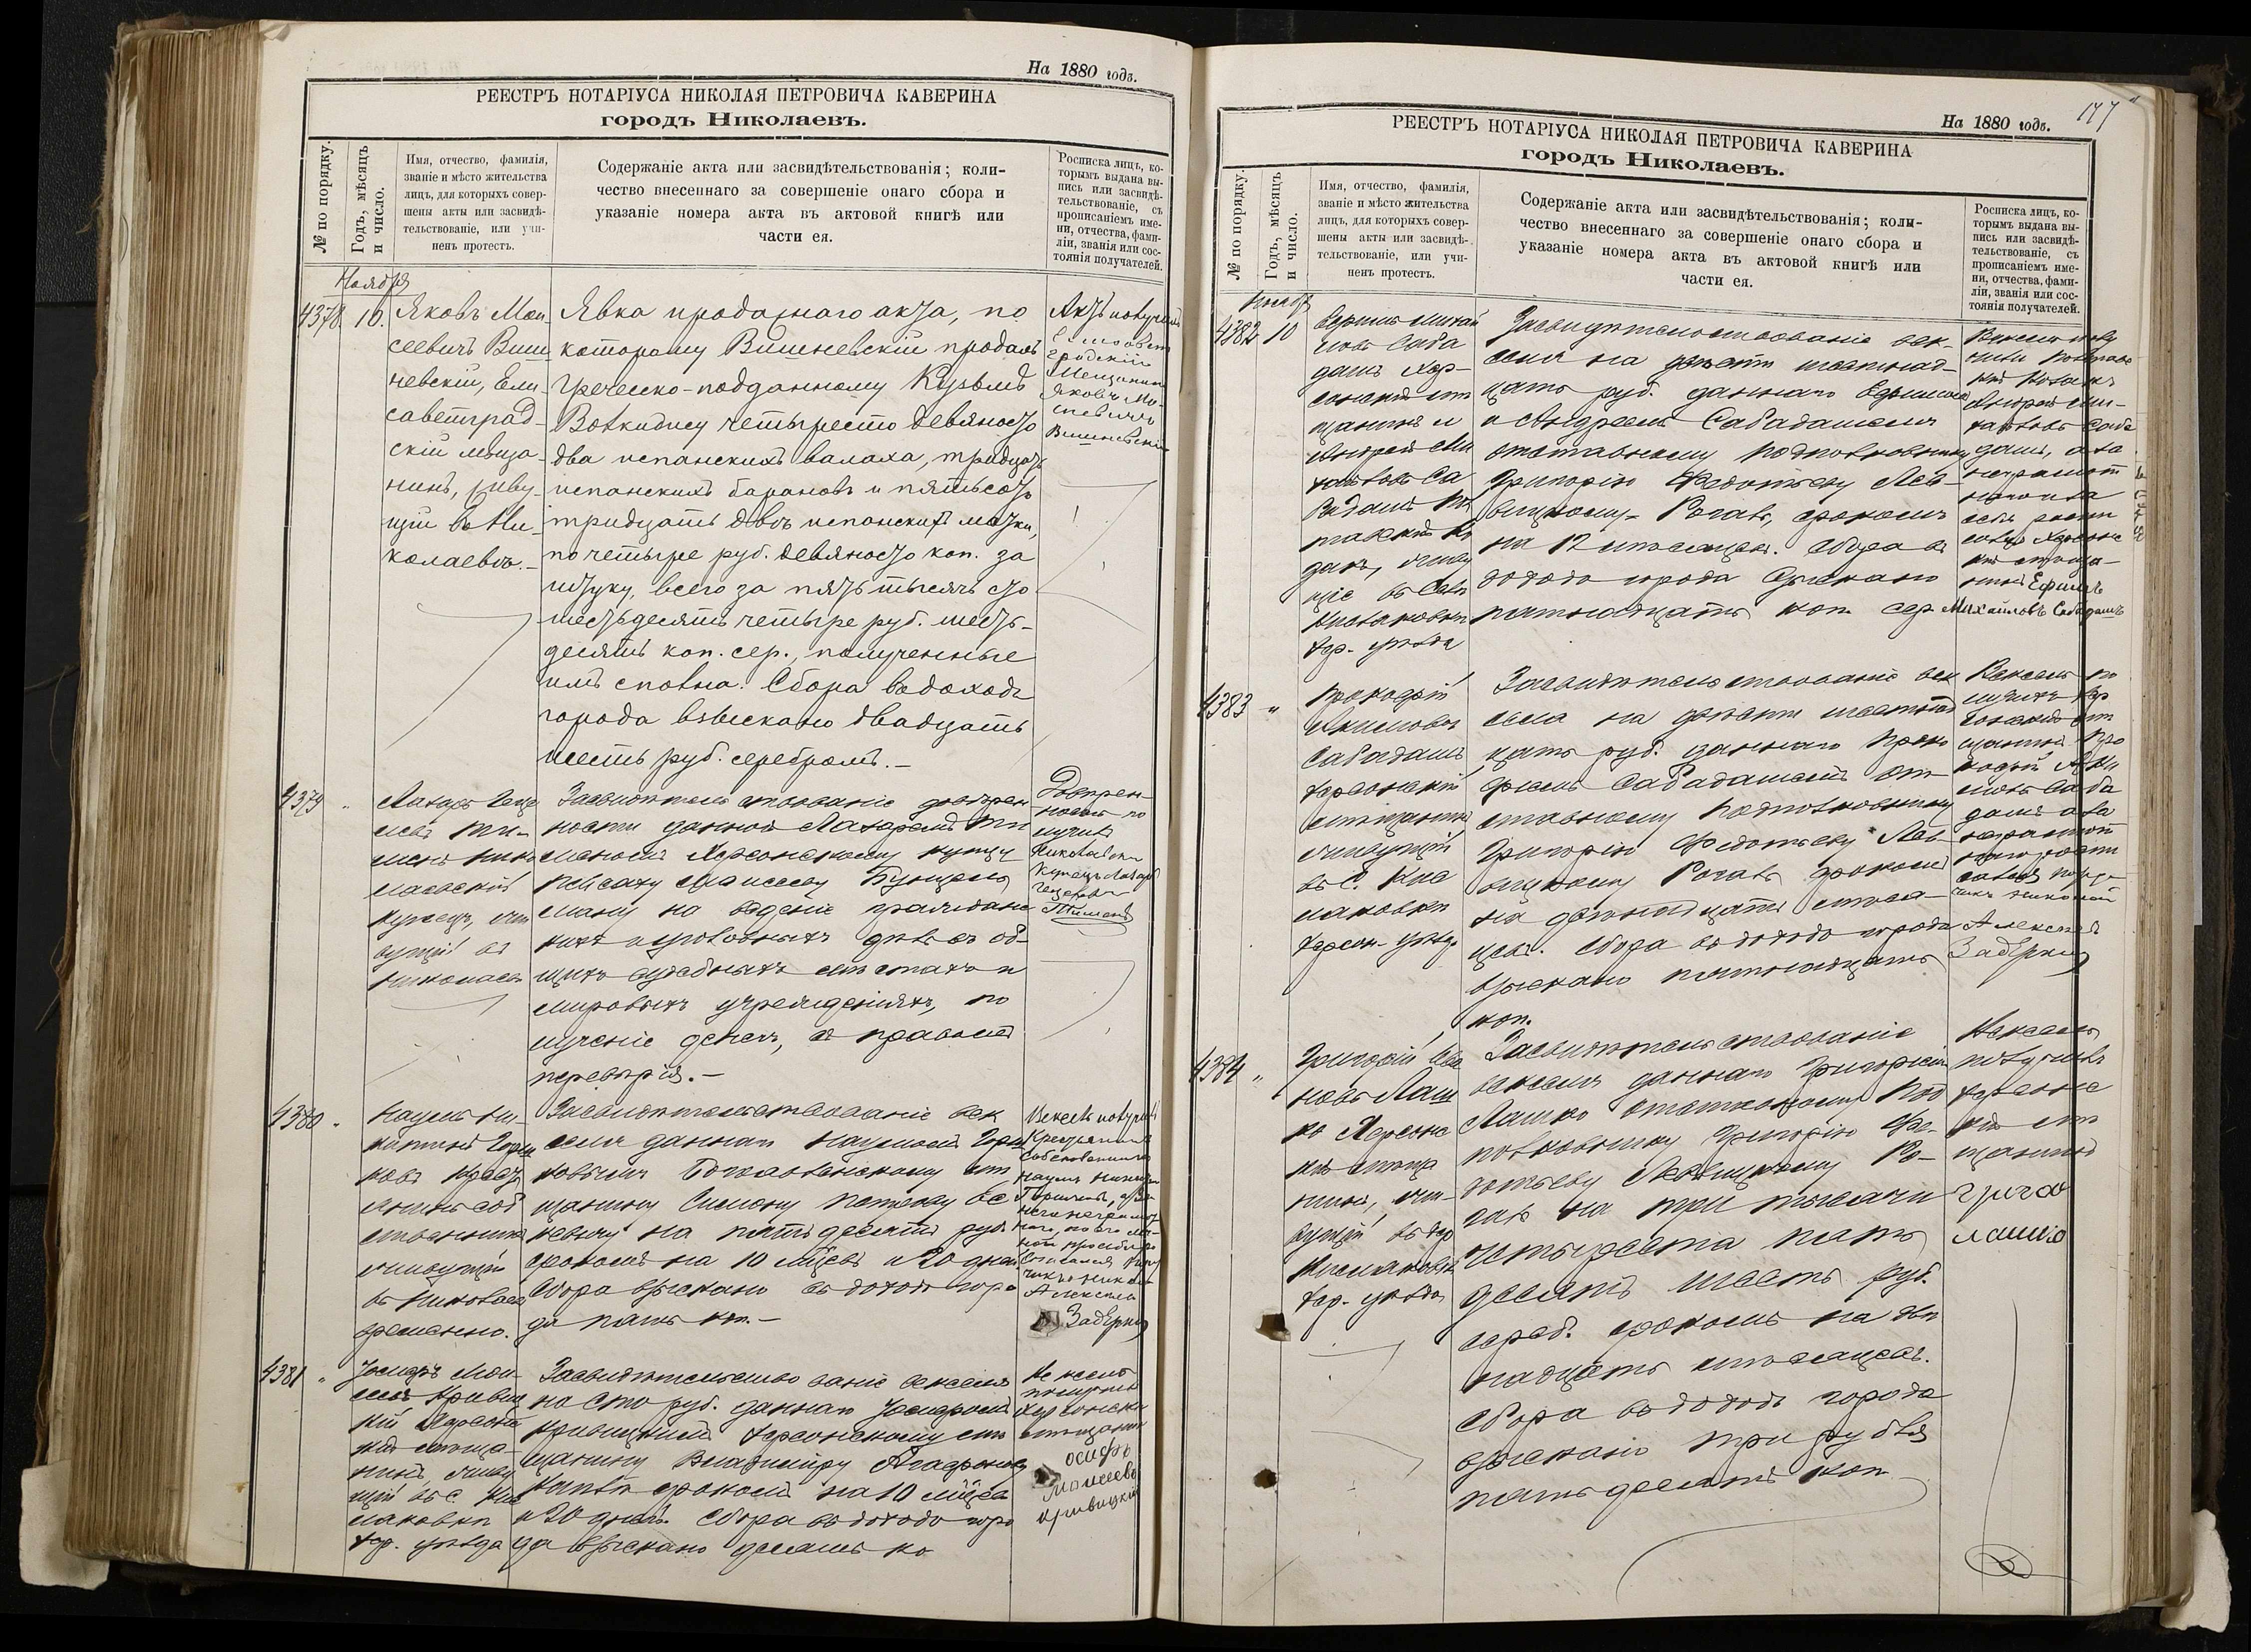 На 1880 годъ.
РЕЕСТРЪ НОТАРІУСА НИКОЛАЯ ПЕТРОВИЧА КАВЕРИНА
городъ Николаевъ.
№ по порядку.
Годъ, мѣсяцъ
и число.
Имя, отчество, фамилія,
званіе и мѣсто жительства
лицъ, для которыхъ совер-
шены акты или засвидѣ-
тельствованіе, или учи-
ненъ протестъ.
Содержаніе акта или засвидѣтельствованія; коли-
чество внесеннаго за совершеніе онаго сбора и
указаніе номера акта въ актовой книгѣ или
части ея.
Росписка лицъ, ко-
торымъ выдана вы-
пись или засвидѣ-
тельствованіе, съ
прописаніемъ име-
ни, отчества, фами-
ліи, званія или сос-
тоянія получателей.
Ноября
4378. 10.
Яковъ Мои-
сеевичъ Виш-
невскій, Ели-
саветград-
скій мѣща-
нинъ, живу-
щій въ Ни-
колаевѣ.
Явка продажнаго акта, по
которому Вишневскій продалъ
Греческо-подданному Кузьмѣ
четыреста девяносто
два испанскихъ валаха, тридцать
испанскихъ барановъ и пятьсотъ
тридцать двѣ испанскихъ матки,
по четыре руб. девяносто коп. за
штуку, всего за пять тысячъ сто
шестьдесятъ четыре руб. шесть-
десятъ коп. сер., полученные
имъ сполна. Сбора въ доходъ
города взыскано двадцать
шесть руб. серебромъ.
Актъ получилъ
Елисавет
градскій
Мещанинъ
Яковъ Мо-
исеевичъ
Вишневскій
4379 "
Лазарь
Николаевскій
купецъ, жи
вущій въ
Николаевѣ
Засвидѣтельствованіе довѣрен
ности данной Лазаремъ
Херсонскому купцу
на веденіе граждан
скихъ и уголовныхъ дѣлъ въ об-
щихъ судебныхъ мѣстахъ и
мировыхъ учрежденіяхъ, по
лученіе денегъ, съ правомъ
передовѣрія.
Довѣрен-
ность по
лучилъ
Николаевскій
Купецъ Лазарь
4380 "
Наумъ Ни-
живущій
въ Николаевѣ
временно.
Засвидѣтельствованіе век
селя даннаго Наумомъ
мѣ
щанину Симону Петрову
на пятьдесятъ руб.
срокомъ на 10 мѣсяцевъ и 20 дней
Сбора взыскано въ доходъ горо
да пять коп.
Вексель получилъ
Наумъ
Алексѣй
Задерій
4381 "
Іосифъ Мои-
сеевъ Кривиц
кій Херсонс
кій мѣща-
нинъ, живу
щій въ с. Кис
ляковкѣ
Хер. уѣзда
Засвидѣтельствованіе векселя
на сто руб. даннаго Іосифомъ
Кривицкимъ Херсонскому мѣ
щанину Владиміру
срокомъ на 10 мѣсяцевъ
и 20 дней. Сбора въ доходъ горо
да взыскано десять ко
Вексель
получилъ
Херсонскій
мѣщанинъ
осифъ
Моисеевъ
Кривицкій
177
На 1880 годъ.
РЕЕСТРЪ НОТАРІУСА НИКОЛАЯ ПЕТРОВИЧА КАВЕРИНА
городъ Николаевъ.
№ по порядку.
Годъ, мѣсяцъ
и число.
Имя, отчество, фамилія,
званіе и мѣсто жительства
лицъ, для которыхъ совер-
шены акты или засвидѣ-
тельствованіе, или учи-
ненъ протестъ.
Содержаніе акта или засвидѣтельствованія; коли-
чество внесеннаго за совершеніе онаго сбора и
указаніе номера акта въ актовой книгѣ или
части ея.
Росписка лицъ, ко-
торымъ выдана вы-
пись или засвидѣ-
тельствованіе, съ
прописаніемъ име-
ни, отчества, фами-
ліи, званія или сос-
тоянія получателей.
Ноября
4382 10
Ефимъ Михай
ловъ Саба
дашъ Хер-
сонскій мѣ
щанинъ и
Андрей Ми
хайловъ Са
бадашъ
живу
щіе въ селѣ
Кисляковкѣ
Хер. уѣзда
Засвидѣтельствованіе век-
селя на двѣсти шестнад-
цать руб. даннаго Ефимомъ
и Андреемъ Сабадашемъ
отставному Подполковнику
Григорію Федотьеву Лев-
вицкому-Рогаль, срокомъ
на 12 мѣсяцевъ. Сбора въ
доходъ города взыскано
пятнадцать коп. сер.
Вексель полу
чили
Андрей Ми-
хайловъ Саба
дашъ, а за
неграмот
Ефимъ
Михайловъ Сабадашъ
4383 "
Прокофій
Акимовъ
Сабадашъ
Херсонскій
мѣщанинъ
живущій
въ С. Кис
ляковкѣ
Херсон. уѣзда
Засвидѣтельствованіе век
селя на двѣсти шестнад
цать руб. даннаго Проко
фіемъ Сабадашемъ От-
ставному Подполковнику
Григорію Федотьеву Лев-
вицкому Рогаль срокомъ
на двѣнадцать мѣся-
цевъ. Сбора въ доходъ города
взыскано пятнадцать
коп.
Вексель по
лучилъ Хер
сонскій мѣ
щанинъ Про
кофій Аки
мовъ Саба
дашъ а за
неграмот
Алексѣй
Задерій
4384 "
Григорій Ива
новъ Лаш
ко Херсонс
кій мѣща
нинъ, жи-
вущій въ дер
Кисляковкѣ
Хер. уѣзда
Засвидѣтельствованіе
векселя даннаго Григоріемъ
Лашко Отставному Под
полковнику Григорію Фе-
дотьеву Левицкому Ро-
галь на три тысячи
четыреста пять
десятъ шесть руб.
сереб. срокомъ на двѣ
надцать мѣсяцевъ.
Сбора въ доходъ города
взыскано три рубля
пятьдесятъ коп
Вексель
получилъ
Херсонс
кій мѣ
щанинъ
лашко